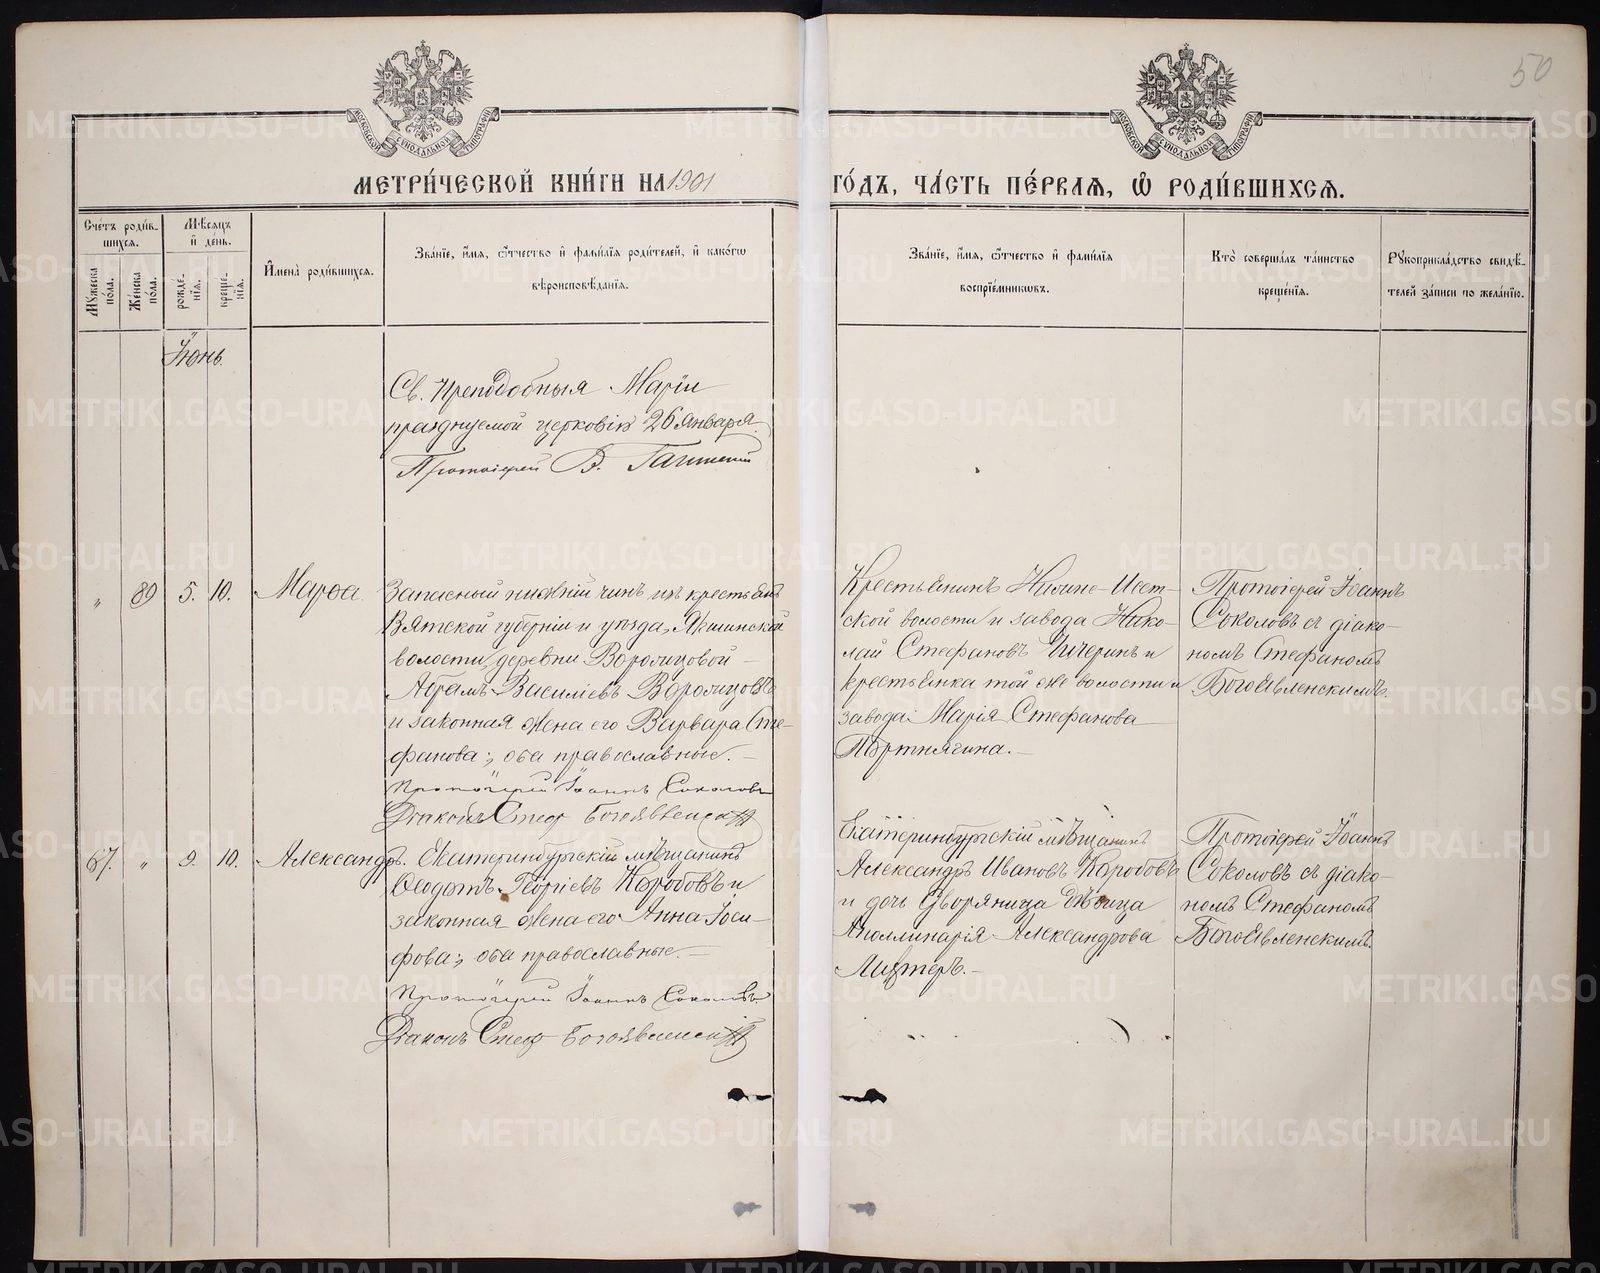 50
МОСКОВСКОЙ СѴНОДАЛЬНОЙ ТИПОГРАФІИ
МОСКОВСКОЙ СѴНОДАЛЬНОЙ ТИПОГРАФІИ
МЕТРИ́ЧЕСКОЙ КНИ́ГИ НА 1901 ГО́ДЪ, ЧА́СТЬ ПЕ́РВАѦ, Ѡ҆ РОДИ́ВШИХСѦ.
Сче́тъ роди́в-
шихсѧ.
Мѣ́сѧцъ
и҆ де́нь.
Мꙋ́жеска по́ла.
Же́нска по́ла.
рожде́-
нїѧ.
креще́-
нїѧ.
И҆мена̀ роди́вшихсѧ.
Зва́нїе, и҆́мѧ, ѻ҆́тчество и҆ фами́лїѧ роди́телей, и҆ како́гѡ
вѣроисповѣ́данїѧ.
Зва́нїе, и҆́мѧ, ѻ҆́тчество и҆ фами́лїѧ
воспрїе́мникѡвъ.
Кто̀ соверша́лъ та́инство
креще́нїѧ.
Рꙋкоприкла́дство свидѣ́-
телей за́писи по жела́нїю.
Іюнь.
Св. Преподобныя Маріи
празднуемой церковію 26 Января
Протоіерей В.
„ 89 5. 10. Марѳа.
Запасный нижній чинъ изъ крестьянъ
Вятской губерніи и уѣзда,
волости, деревни
Абрамъ Василіевъ
и законная жена его Варвара Сте-
фанова; оба православные.
Протоіерей Іоаннъ Соколовъ
Діаконъ Стеф Богоявленскій
Крестьянинъ Нижне-Исет-
ской волости и завода Нико-
лай Стефановъ Чичеринъ и
крестьянка той же волости и
завода Марія Стефанова
Портнягина.
Протоіерей Іоаннъ
Соколовъ съ діако-
номъ Стефаномъ
Богоявленскимъ.
67. „ 9. 10. Александръ.
Екатеринбургскій мѣщанинъ
Ѳеодотъ Георгіевъ Коробовъ и
законная жена его Анна Іоси-
фова; оба православные.
Протоіерей Іоаннъ Соколовъ
Діаконъ Стеф Богоявленскій
Екатеринбургскій мѣщанинъ
Александръ Ивановъ Коробовъ
и дочь Дворянина дѣвица
Аполлинарія Александрова
Протоіерей Іоаннъ
Соколовъ съ діако-
номъ Стефаномъ
Богоявленскимъ.
METRIKI.GASO-URAL.RU